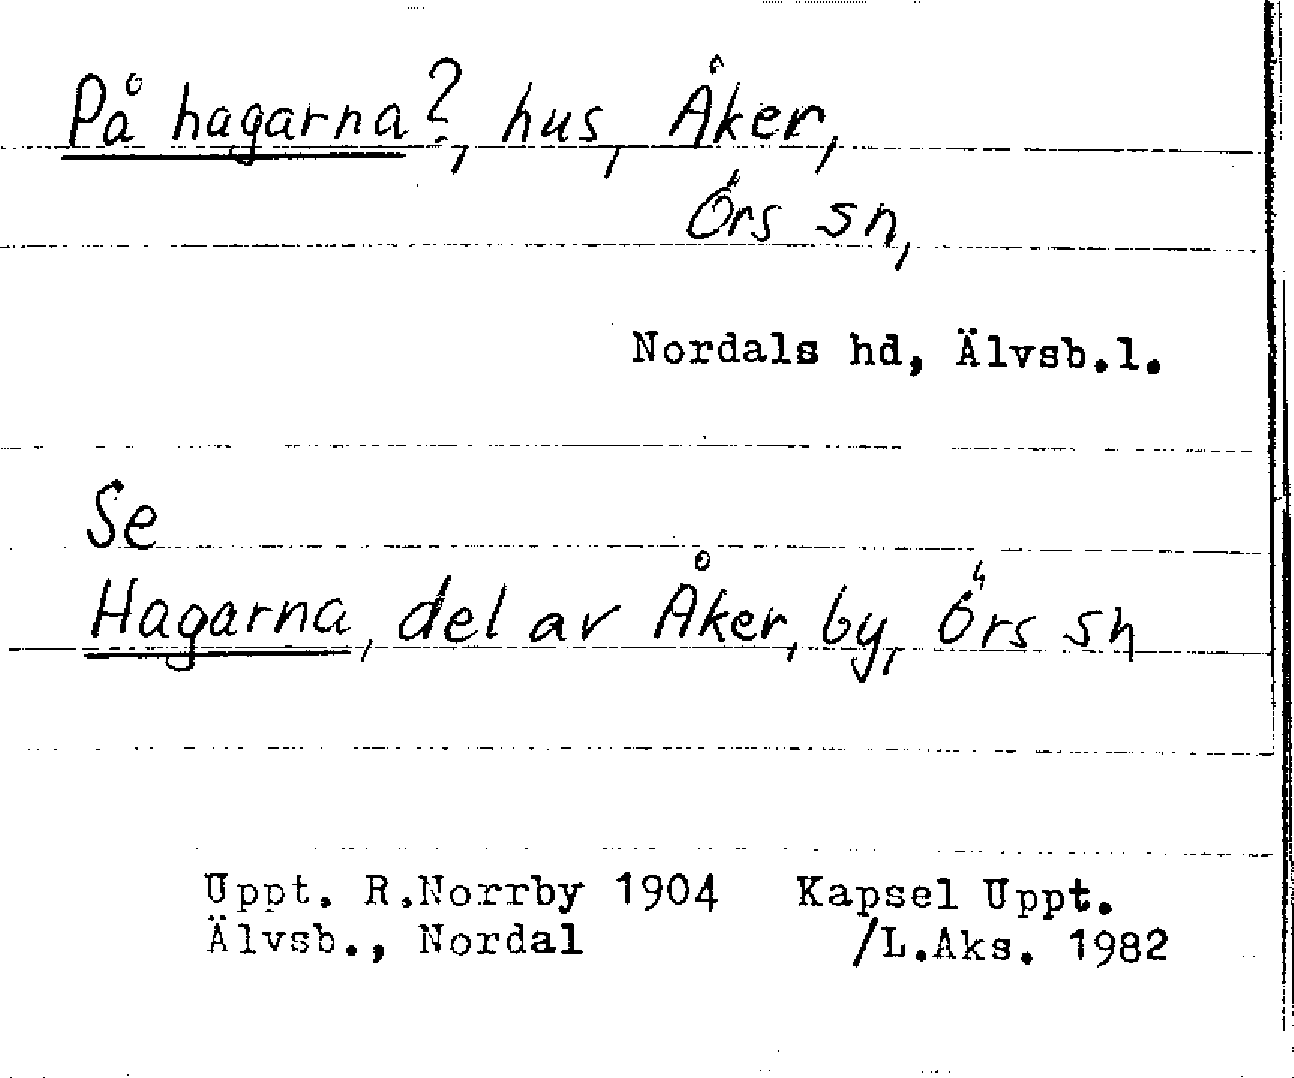 På hagarna?, hus, Åker,
Örs sn,
Nordals hd, Älvsb.l.
Se
Hagarna, del av Åker, by, Örs sn
Uppt. R.Norrby 1904 Kapsel Uppt.
Älvsb., Nordal /L.Aks. 1982